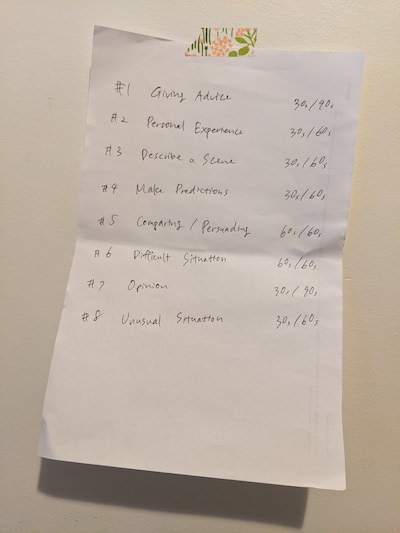 #1 Giving Advice 30s/90s
#2 Personal Experience 30s/60s
#3 Describe a Scene 30s/60s
#4 Make Predictions 30s/60s
#5 Comparing / Persuading 60s/60s
#6 Difficult Situation 60s/60s
#7 Opinion 30s/90s
#8 Unusual Situation 30s/60s